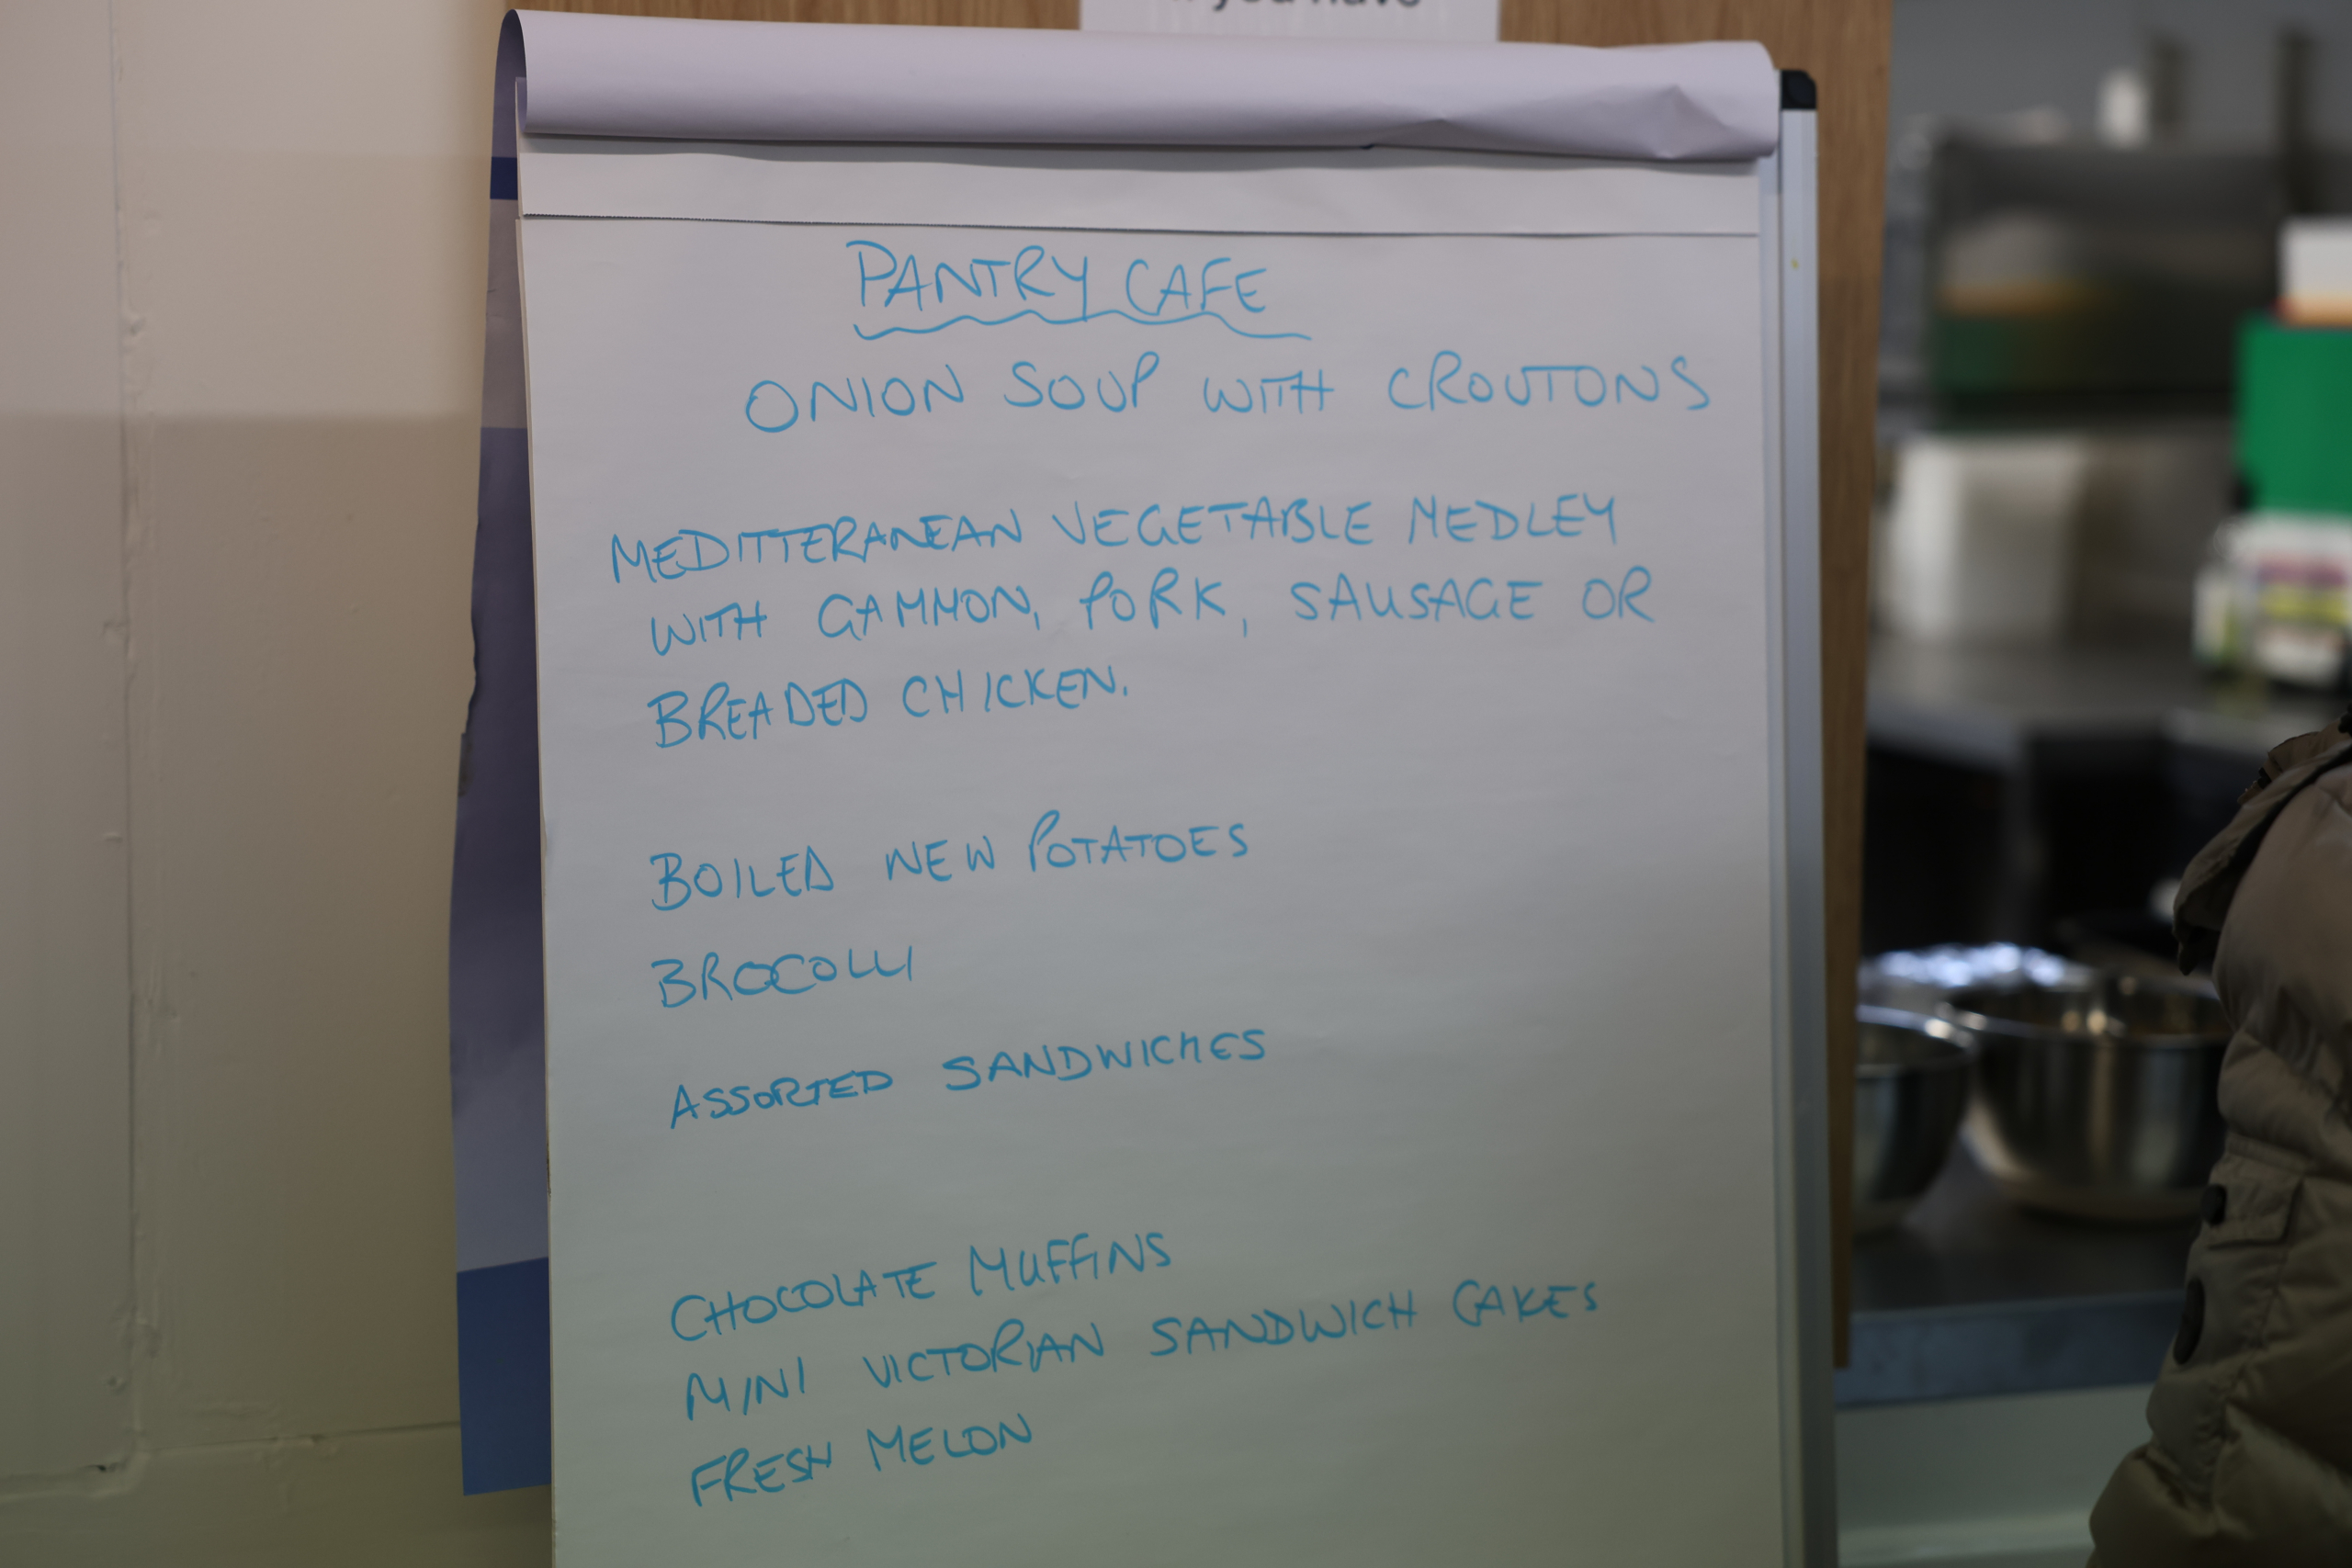 if you have
PANTRY CAFE
ONION SOUP WITH CROUTONS
MEDITTERANEAN VEGETABLE MEDLEY
WITH GAMMON, PORK, SAUSAGE OR
BREADED CHICKEN.
BOILED NEW POTATOES
BROCOLLI
ASSORTED SANDWICHES
CHOCOLATE MUFFINS
MINI VICTORIAN SANDWICH CAKES
FRESH MELON